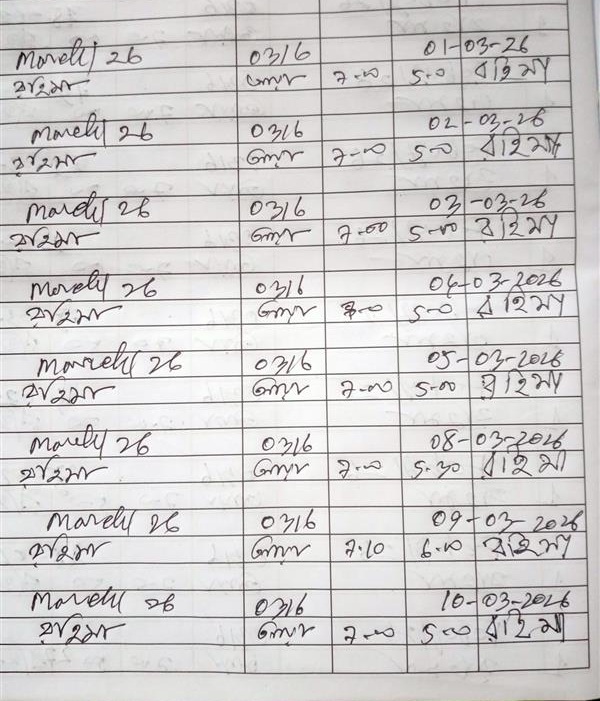 March/26 0316 01-03-26
রহিমা 7-00 5-0 রাহিমা
March/26 0316 02-03-26
রহিমা 7-00 5-00 রাহিমা
March/26 0316 03-03-26
রহিমা 7-00 5-00 রাহিমা
March/26 0316 04-03-2026
রহিমা 7-0 5-0 রাহিমা
March/26 0316 05-03-2026
রহিমা 7-00 5-00 রাহিমা
March/26 0316 08-03-2026
রহিমা 7-00 5-30 রাহিমা
March/26 0316 09-03-2026
রহিমা 7-10 6-00 রহিমা
March/26 0316 10-03-2026
রহিমা 7-00 5-00 রাহিমা